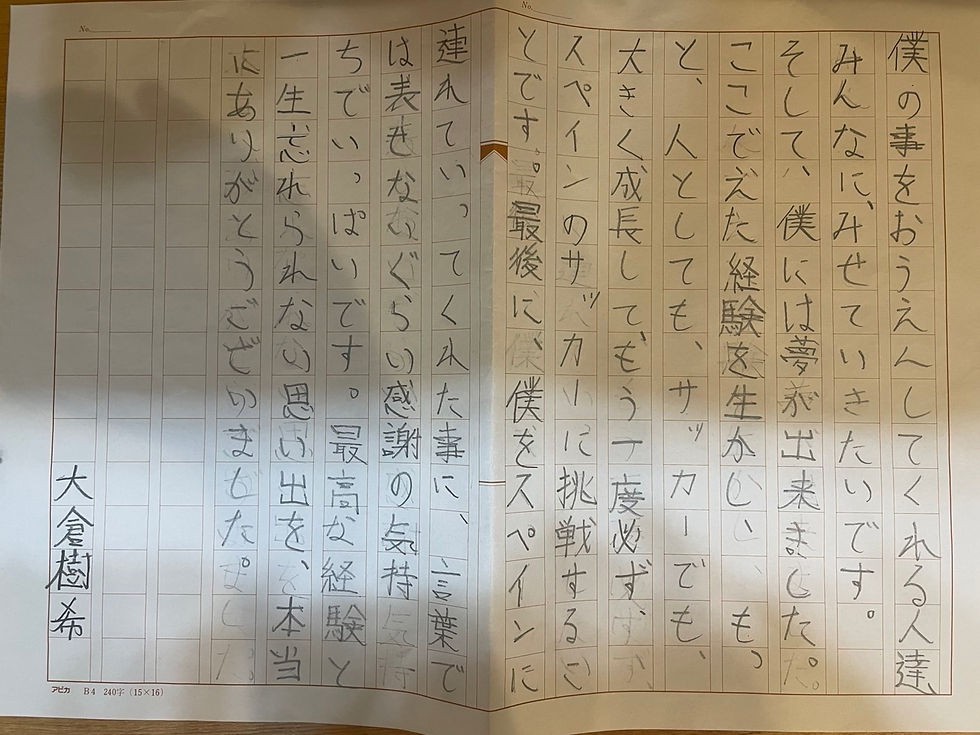 No.
No.
僕の事をおうえんしてくれる人達、
みんなに、みせていきたいです。
そして、僕には夢が出来ました。
ここでえた経験を生かし、もっ
と、人としても、サッカーでも、
大きく成長して、もう一度必ず、
スペインのサッカーに挑戦するこ
とです。最後に、僕をスペインに
連れていってくれた事に、言葉で
は表せないぐらい感謝の気持
ちでいっぱいです。最高な経験と
一生忘れられない思い出を、本当
にありがとうございました。
大倉樹希
アピカ B4 240字(15×16)